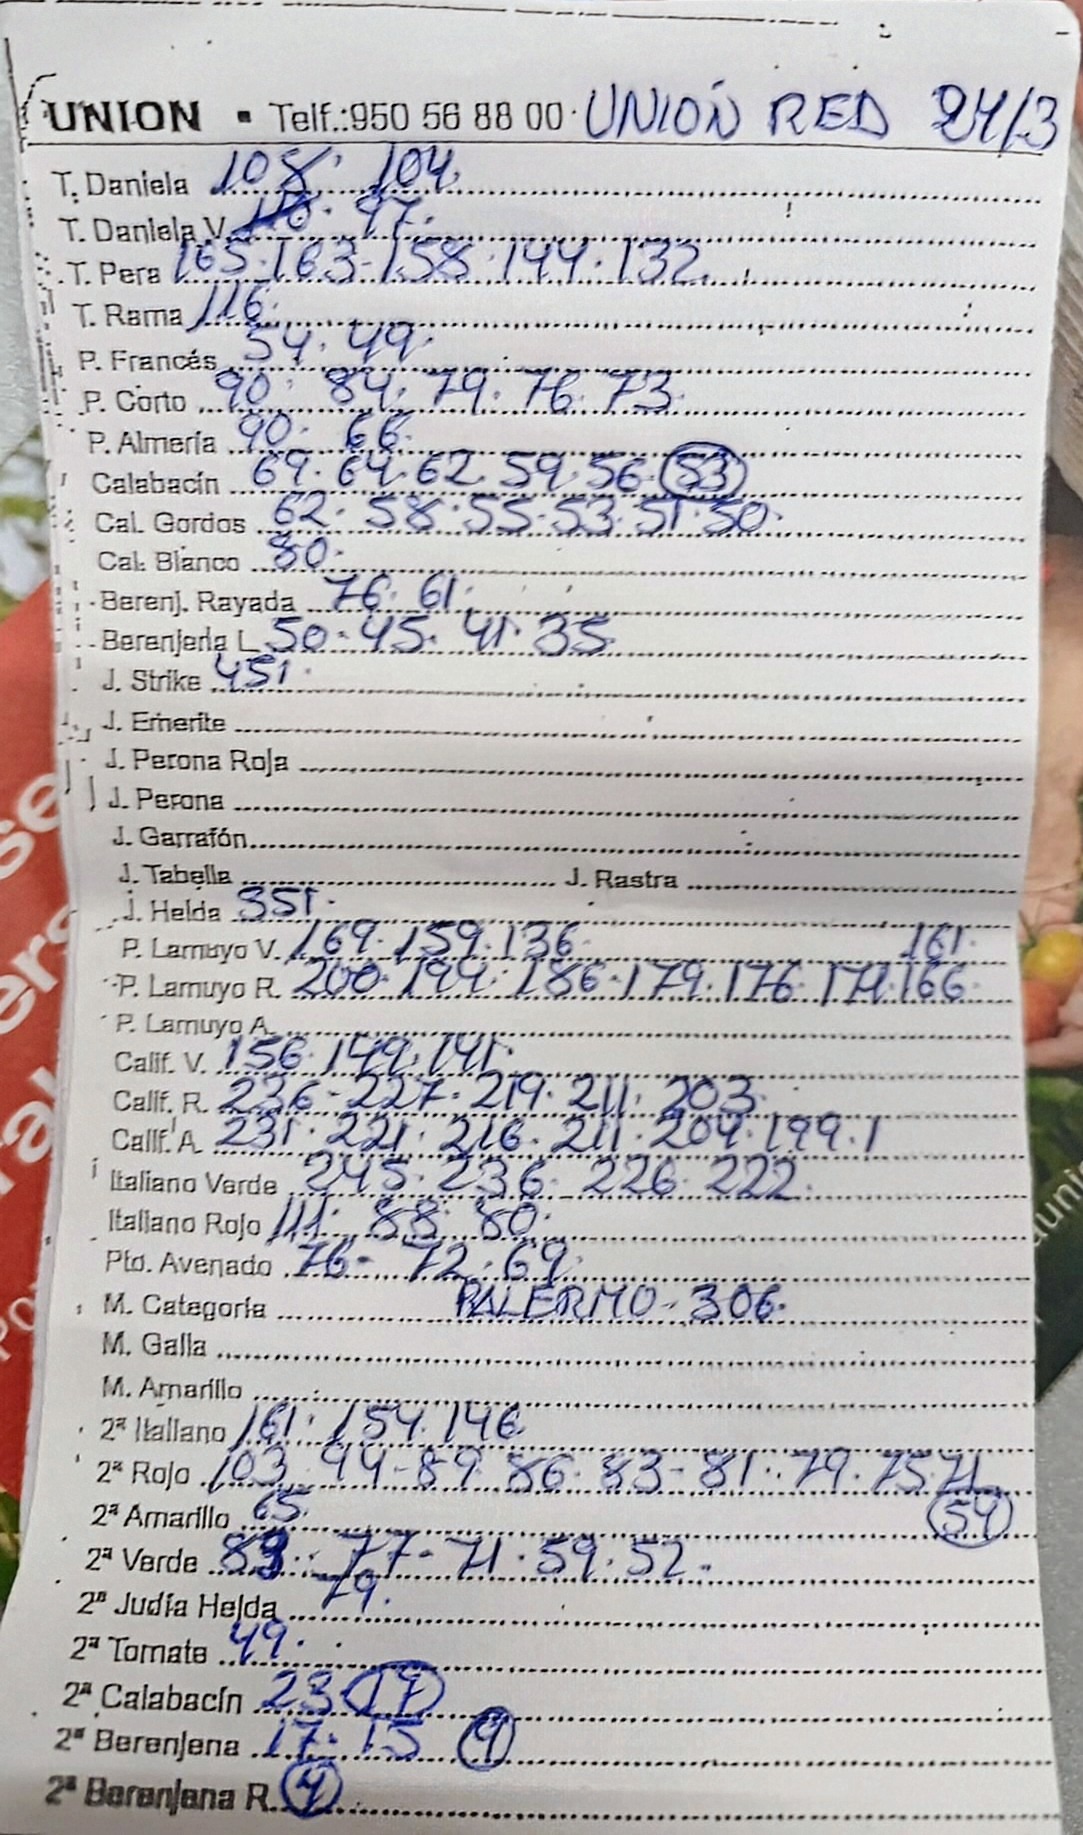 UNION • Telf.:950 56 88 00 · UNION RED 24/3
T. Daniela 108 · 104.
T. Daniela V. 97.
T. Pera 165 · 163 - 158 · 144 · 132.
T. Rama 116.
P. Francés 54 · 49.
P. Corto 90 · 84 · 79 · 76 · 73.
P. Almería 90 · 66.
Calabacín 69 · 64 · 62 59 · 56 · 53
Cal. Gordos 62 · 58 · 55 · 53 · 51 · 50.
Cal. Blanco 80.
Berenj. Rayada 76 · 61.
Berenjena L 50 · 45 · 41 · 35.
J. Strike 451.
J. Emerite
J. Perona Roja
J. Perona
J. Garrafón
J. Tabella J. Rastra
J. Helda 351.
P. Lamuyo V. 169 · 159 · 136 161.
P. Lamuyo R. 200 · 194 · 186 · 179 · 176 · 171 · 166
P. Lamuyo A.
Calif. V. 156 · 149 · 141.
Calif. R. 236 - 227 · 219 · 211 · 203.
Calif. A. 231 · 221 · 216 · 211 · 204 · 199 · 1
Italiano Verde 245 · 236 · 226 · 222.
Italiano Rojo 111 · 88 · 80.
Pto. Avenado 76 - 72 · 69.
M. Categoría PALERMO - 306.
M. Galia
M. Amarillo
2ª Italiano 161 · 154 · 146
2ª Rojo 103 94 - 89 86 · 83 - 81 · 79 · 75 71
2ª Amarillo 65. 54
2ª Verde 77 - 71 · 59 · 52.
2ª Judía Helda 79.
2ª Tomate 49.
2ª Calabacín 23 17
2ª Berenjena 17 · 15
2ª Berenjena R.